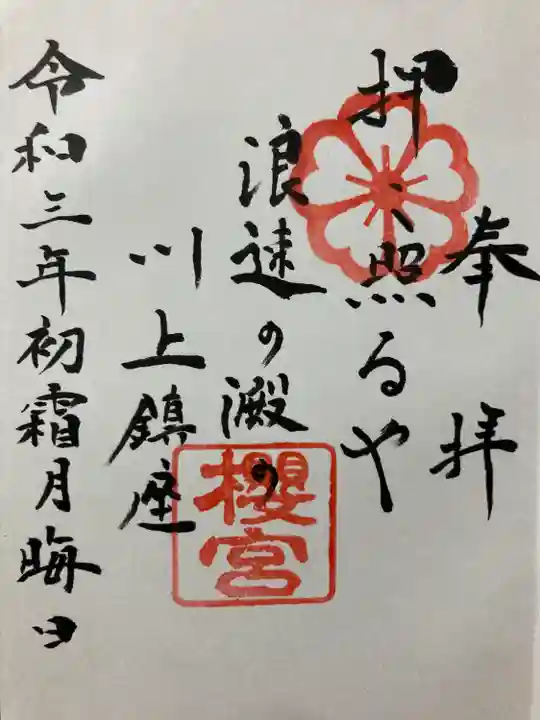 奉拝
押、照るや
浪速の澱の
川上鎮座
令和三年初霜月晦日
櫻宮